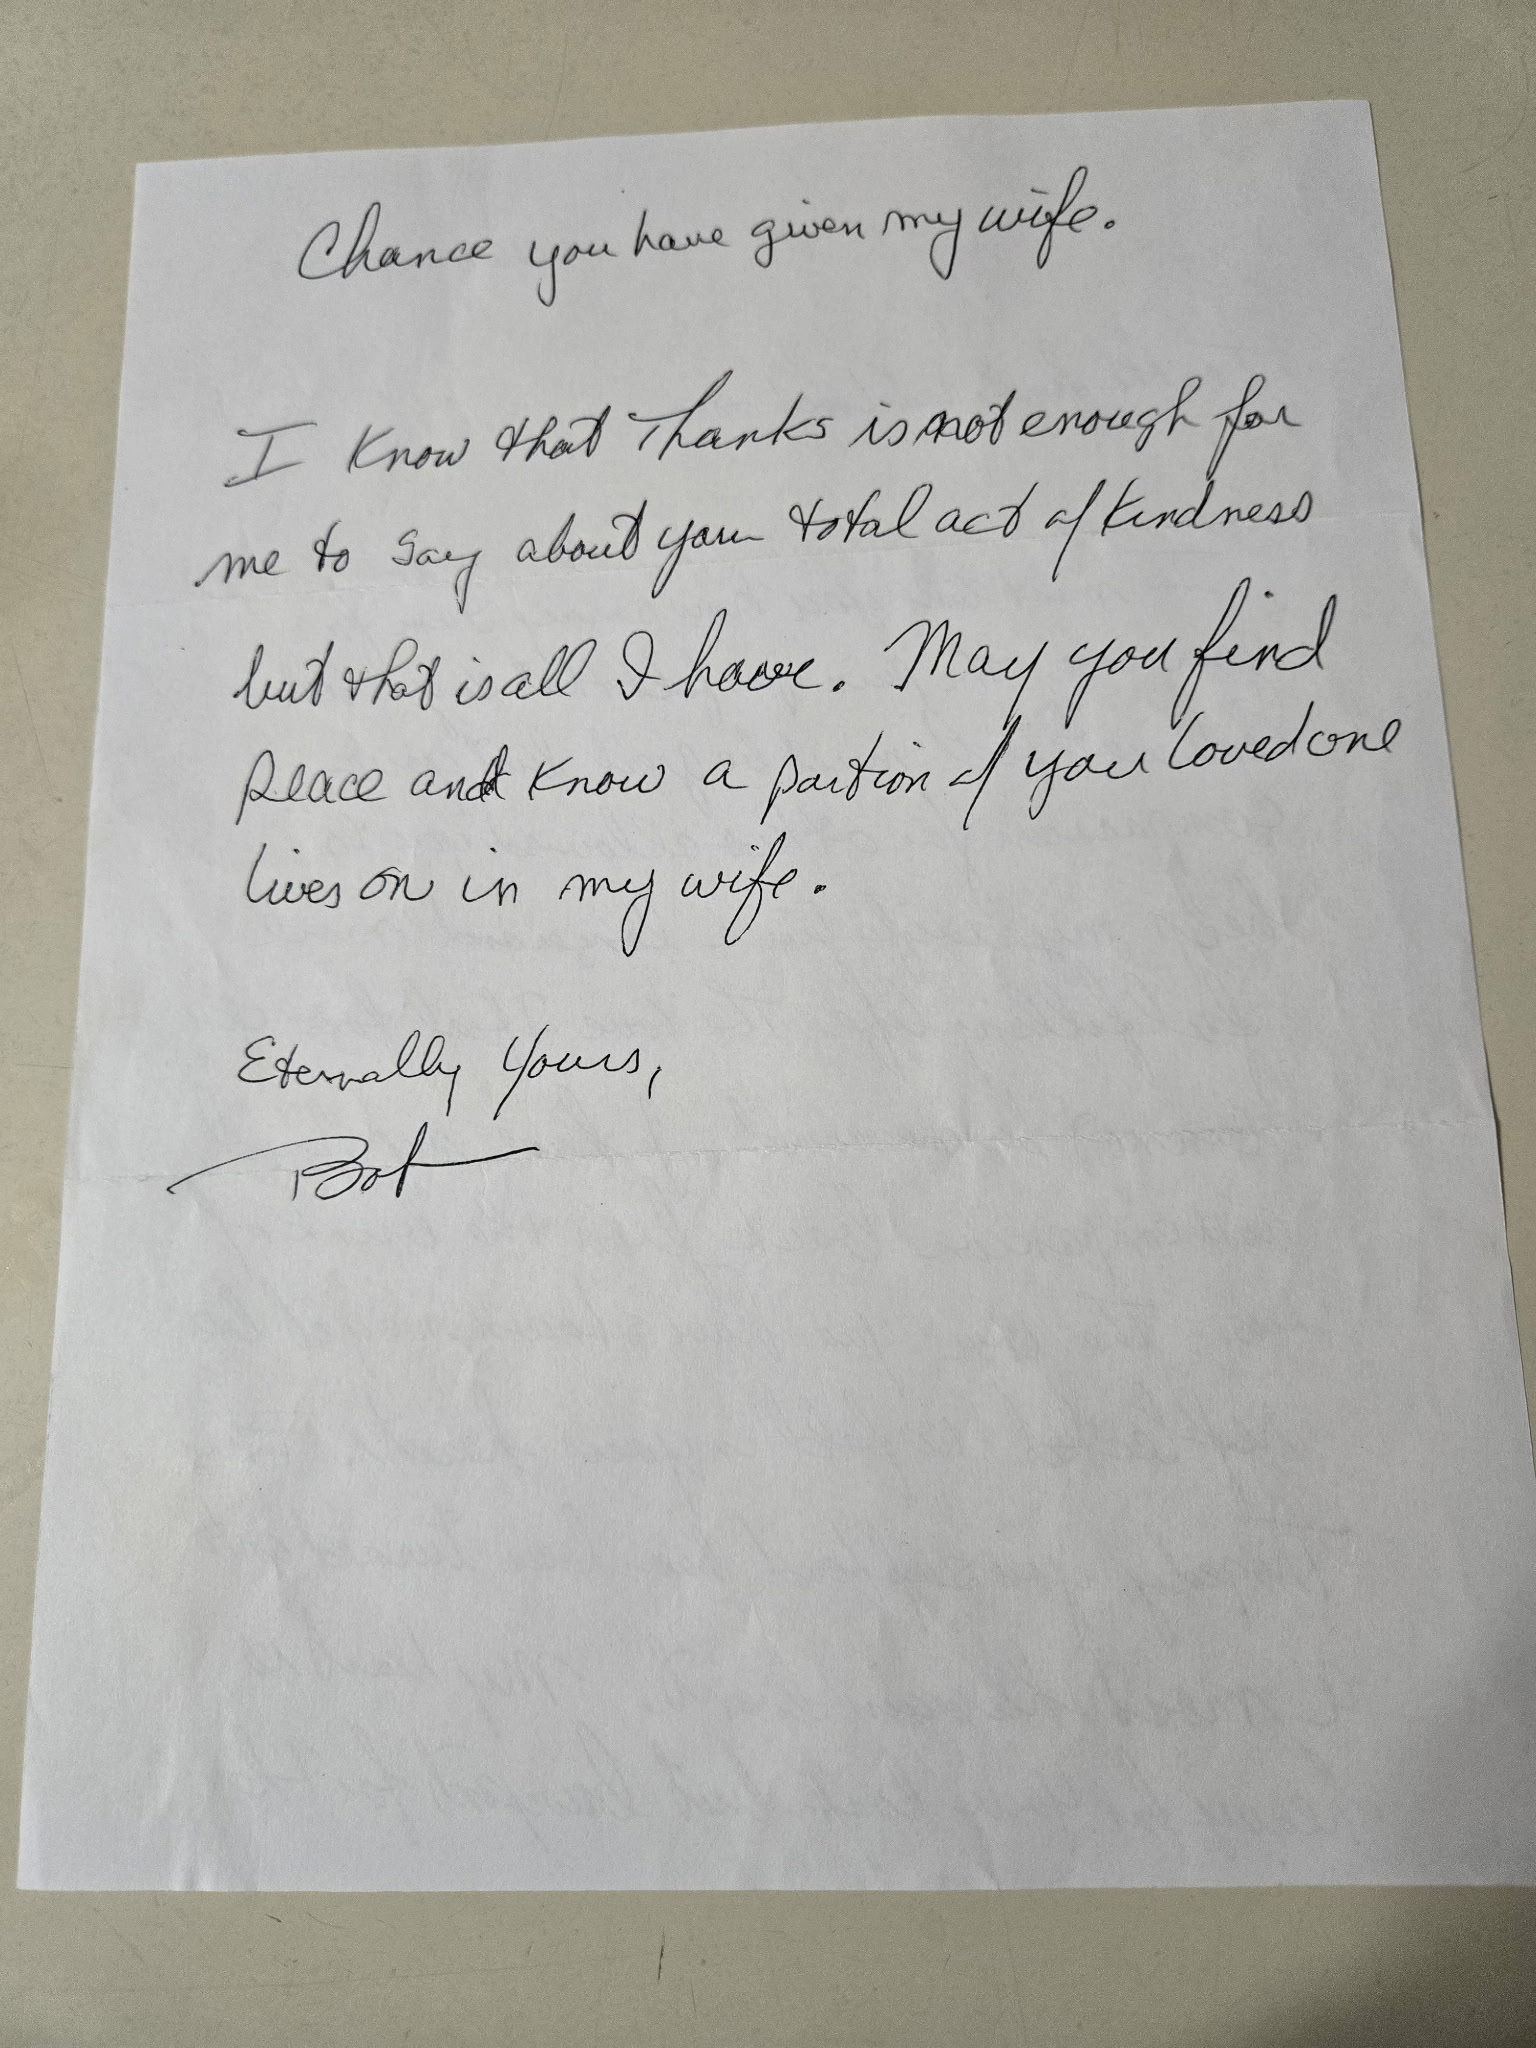 Chance you have given my wife.
I Know that Thanks is not enough for
me to say about your total act of kindness
but that is all I have. May you find
peace and Know a portion of you loved one
lives on in my wife.
Eternally Yours,
Bob